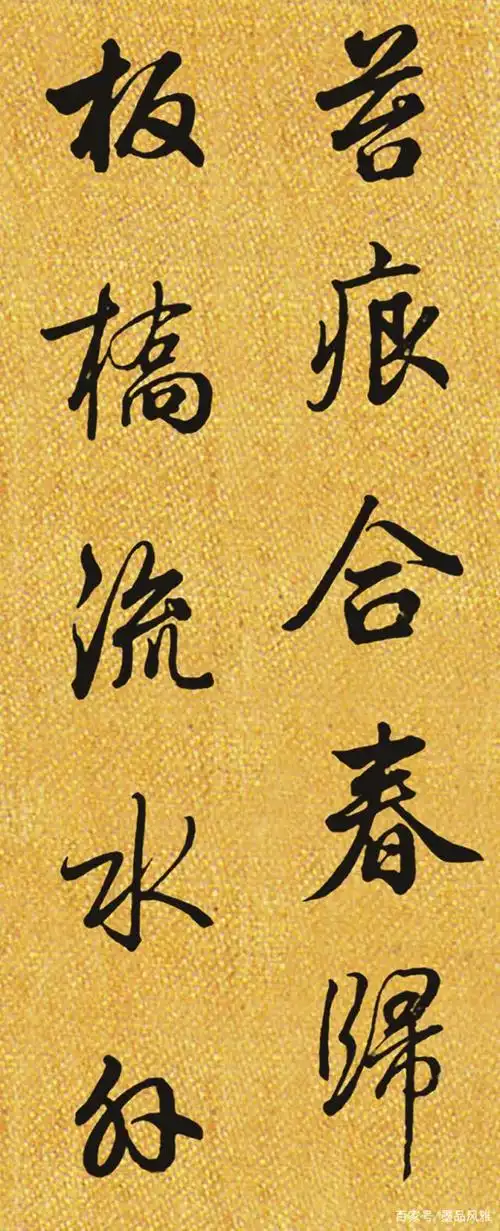 苔痕合春歸
板橋流水外
百家号/墨品风雅